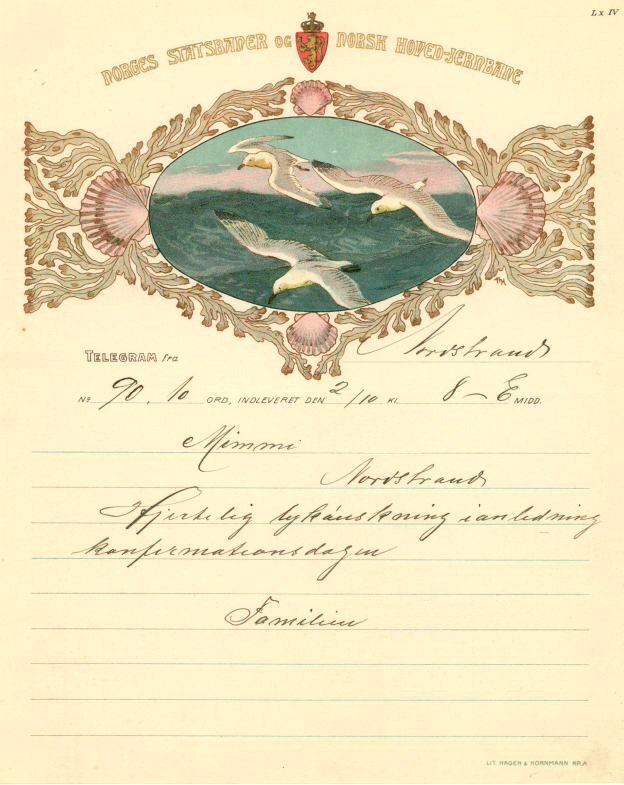 Lx IV
NORGES STATSBANER OG NORSK HOVED-JERNBANE
TELEGRAM fra Nordstrand
No 90. 10 ORD, INDLEVERET DEN 2/10 Kl. 8 - E MIDD.
Mimmi
Nordstrand
Hjertelig lykønskning i anledning
konfirmationsdagen
Familien
LIT. HAGEN & KORNMANN KR.A